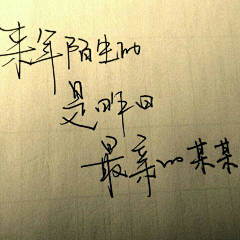 来年陌生的
是昨日
最亲的某某